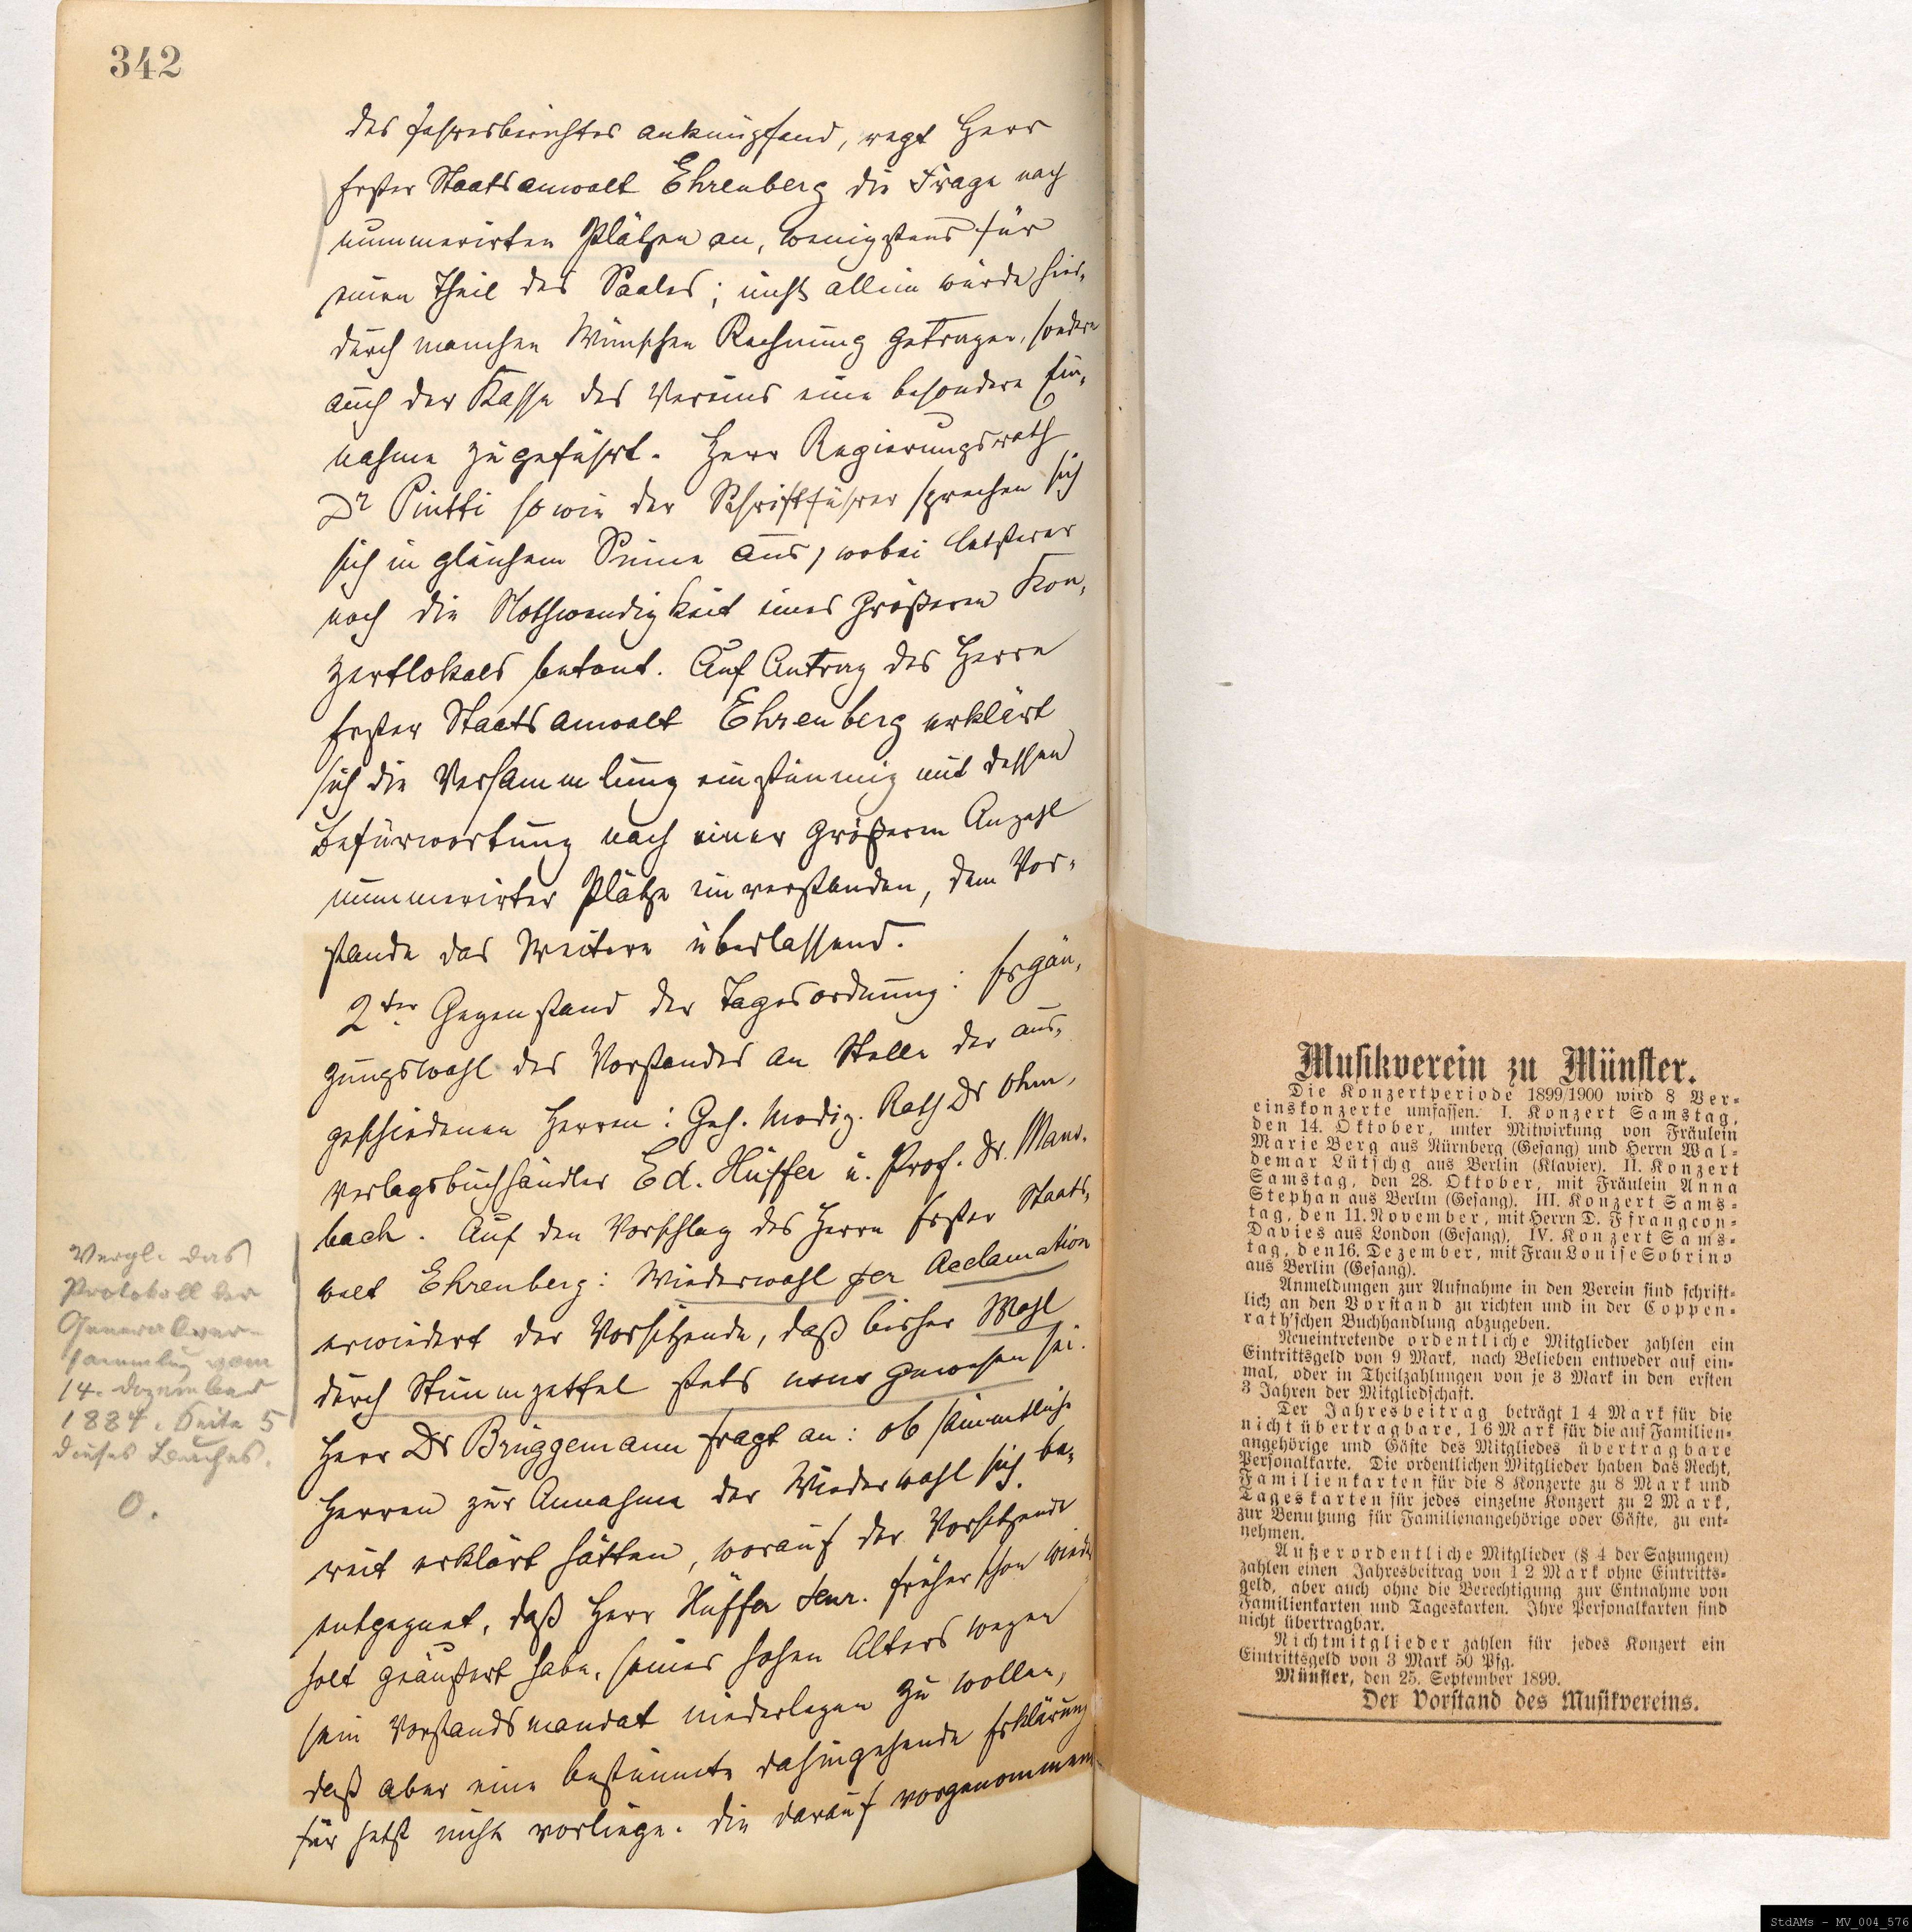 342
des Jahresberichtes anknüpfend, regt Herr
Erster Staatsanwalt Ehrenberg die Frage nach
nummerirten Plätzen an, wenigstens für
einen Theil des Saales; nicht allein würde hier-
durch manchen Wünschen Rechnung getragen, sondern
auch der Kasse des Vereins eine besondere Ein-
nahme zugeführt. Herr Regierungsrath
Dr Piutti sowie der Schriftführer sprechen sich
sich in gleichem Sinne aus, wobei letzterer
noch die Nothwendigkeit eines größeren Kon-
zertlokals betont. Auf Antrag des Herrn
Erster Staatsanwalt Ehrenberg erklärt
sich die Versammlung einstimmig mit dessen
Befürwortung nach einer größeren Anzahl
nummerirter Plätze einverstanden, dem Vor-
stande das Weitere überlassend.
2ter Gegenstand der Tagesordnung: Ergän-
zungswahl des Vorstandes an Stelle der aus-
geschiedenen Herren: Geh. Mediz. Rath Dr Ohm,
Verlagsbuchhändler Ed. Hüffer u. Prof. Dr. Mans-
bach. Auf den Vorschlag des Herrn Erster Staats-
walt Ehrenberg: Wiederwahl per Acclamation
erwiedert der Vorsitzende, daß bisher Wahl
durch Stimmzettel stets usus gewesen sei.
Herr Dr Brüggemann fragt an: ob sämmtliche
Herren zur Annahme der Wiederwahl sich be-
reit erklärt hätten, worauf der Vorsitzende
entgegnet, daß Herr Hüffer senr. früher schon wieder
holt geäußert habe, seines hohen Alters wegen
sein Vorstandsmandat niederlegen zu wollen,
daß aber eine bestimmte dahingehende Erklärung
für jetzt nicht vorliege. Die darauf vorgenommene
Vergl. das
Protokoll der
Generalver-
sammlung vom
14. Dezember
1884, Seite 5
dieses Buches.
O.
Musikverein zu Münster.
Die Konzertperiode 1899/1900 wird 8 Ver-
einskonzerte umfassen. I. Konzert Samstag,
den 14. Oktober, unter Mitwirkung von Fräulein
Marie Berg aus Nürnberg (Gesang) und Herrn Wal-
demar Lütschg aus Berlin (Klavier). II. Konzert
Samstag, den 28. Oktober, mit Fräulein Anna
Stephan aus Berlin (Gesang). III. Konzert Sams-
tag, den 11. November, mit Herrn D. Ffrangcon-
Davies aus London (Gesang). IV. Konzert Sams-
tag, den 16. Dezember, mit Frau Louise Sobrino
aus Berlin (Gesang).
Anmeldungen zur Aufnahme in den Verein sind schrift-
lich an den Vorstand zu richten und in der Coppen-
rath'schen Buchhandlung abzugeben.
Neueintretende ordentliche Mitglieder zahlen ein
Eintrittsgeld von 9 Mark, nach Belieben entweder auf ein-
mal, oder in Theilzahlungen von je 3 Mark in den ersten
3 Jahren der Mitgliedschaft.
Der Jahresbeitrag beträgt 14 Mark für die
nicht übertragbare, 16 Mark für die auf Familien-
angehörige und Gäste des Mitgliedes übertragbare
Personalkarte. Die ordentlichen Mitglieder haben das Recht,
Familienkarten für die 8 Konzerte zu 8 Mark und
Tageskarten für jedes einzelne Konzert zu 2 Mark,
zur Benutzung für Familienangehörige oder Gäste, zu ent-
nehmen.
Außerordentliche Mitglieder (§ 4 der Satzungen)
zahlen einen Jahresbeitrag von 12 Mark ohne Eintritts-
geld, aber auch ohne die Berechtigung zur Entnahme von
Familienkarten und Tageskarten. Ihre Personalkarten sind
nicht übertragbar.
Nichtmitglieder zahlen für jedes Konzert ein
Eintrittsgeld von 3 Mark 50 Pfg.
Münster, den 25. September 1899.
Der Vorstand des Musikvereins.
StdAMs - MV_004_576